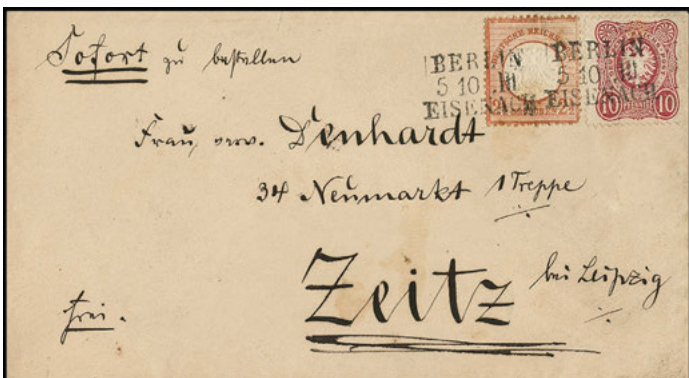 Sofort zu bestellen
BERLIN
5 10 III
EISENACH
BERLIN
5 10 III
EISENACH
10 10
Frau verw. Denhardt
34 Neumarkt 1 Treppe
Zeitz bei Leipzig
frei.